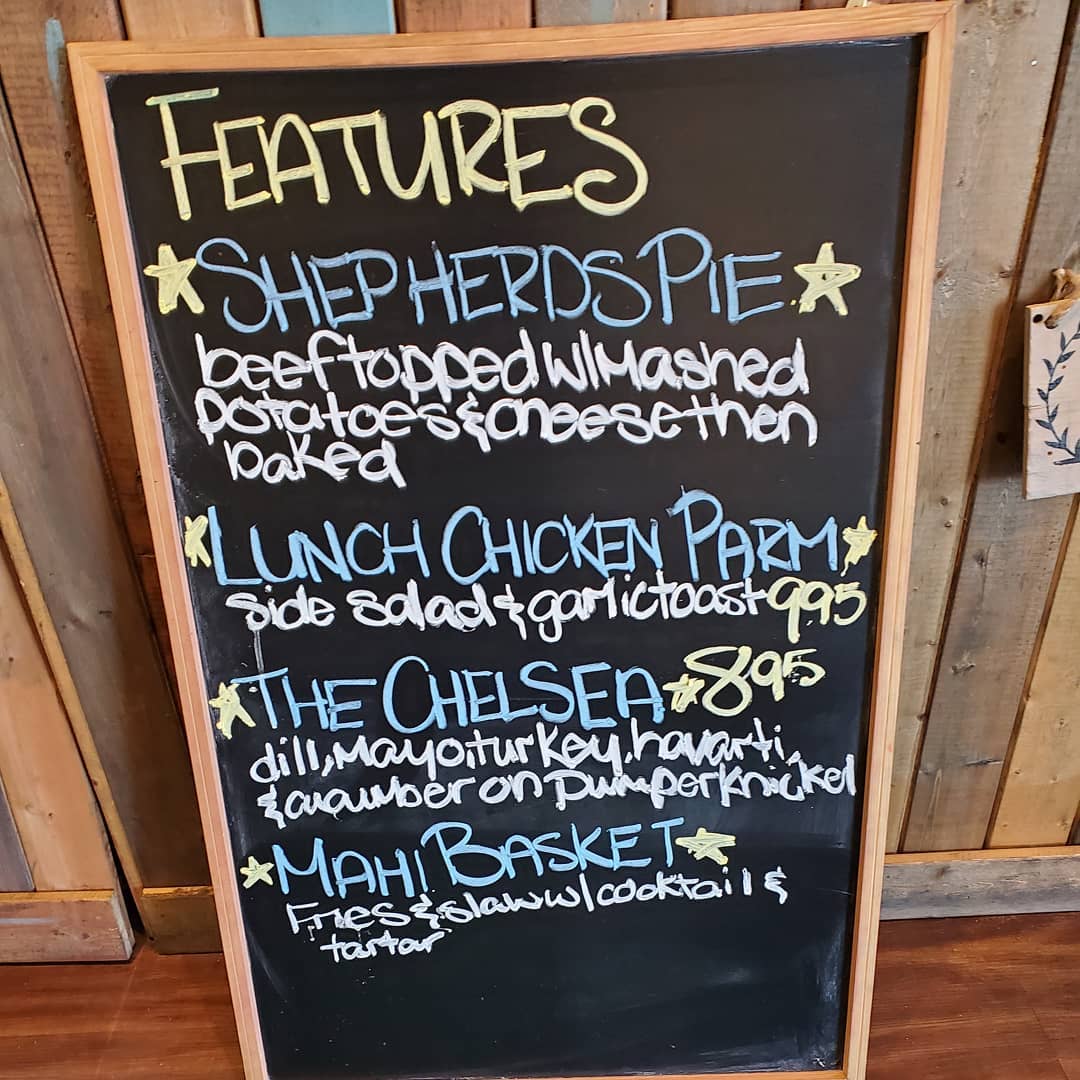 FEATURES
SHEPHERDS PIE
beef topped w/ Mashed
potatoes & cheese then
baked
LUNCH CHICKEN PARM
side salad & garlic toast 995
THE CHELSEA 895
dill, Mayo, turkey, havarti,
& cucumber on pumperknickel
MAHI BASKET
Fries & slaw w/ cocktail &
tartar